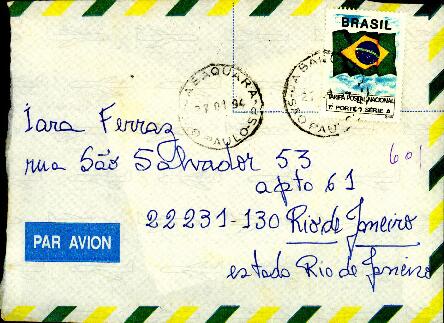 BRASIL
TARIFA POSTAL NACIONAL
1º PORTE SÉRIE A
JABAQUARA
27 01 94
S. PAULO-SP
Iara Ferraz
rua São Salvador 53
apto 61
601
22231-130 Rio de Janeiro
estado Rio de Janeiro
PAR AVION